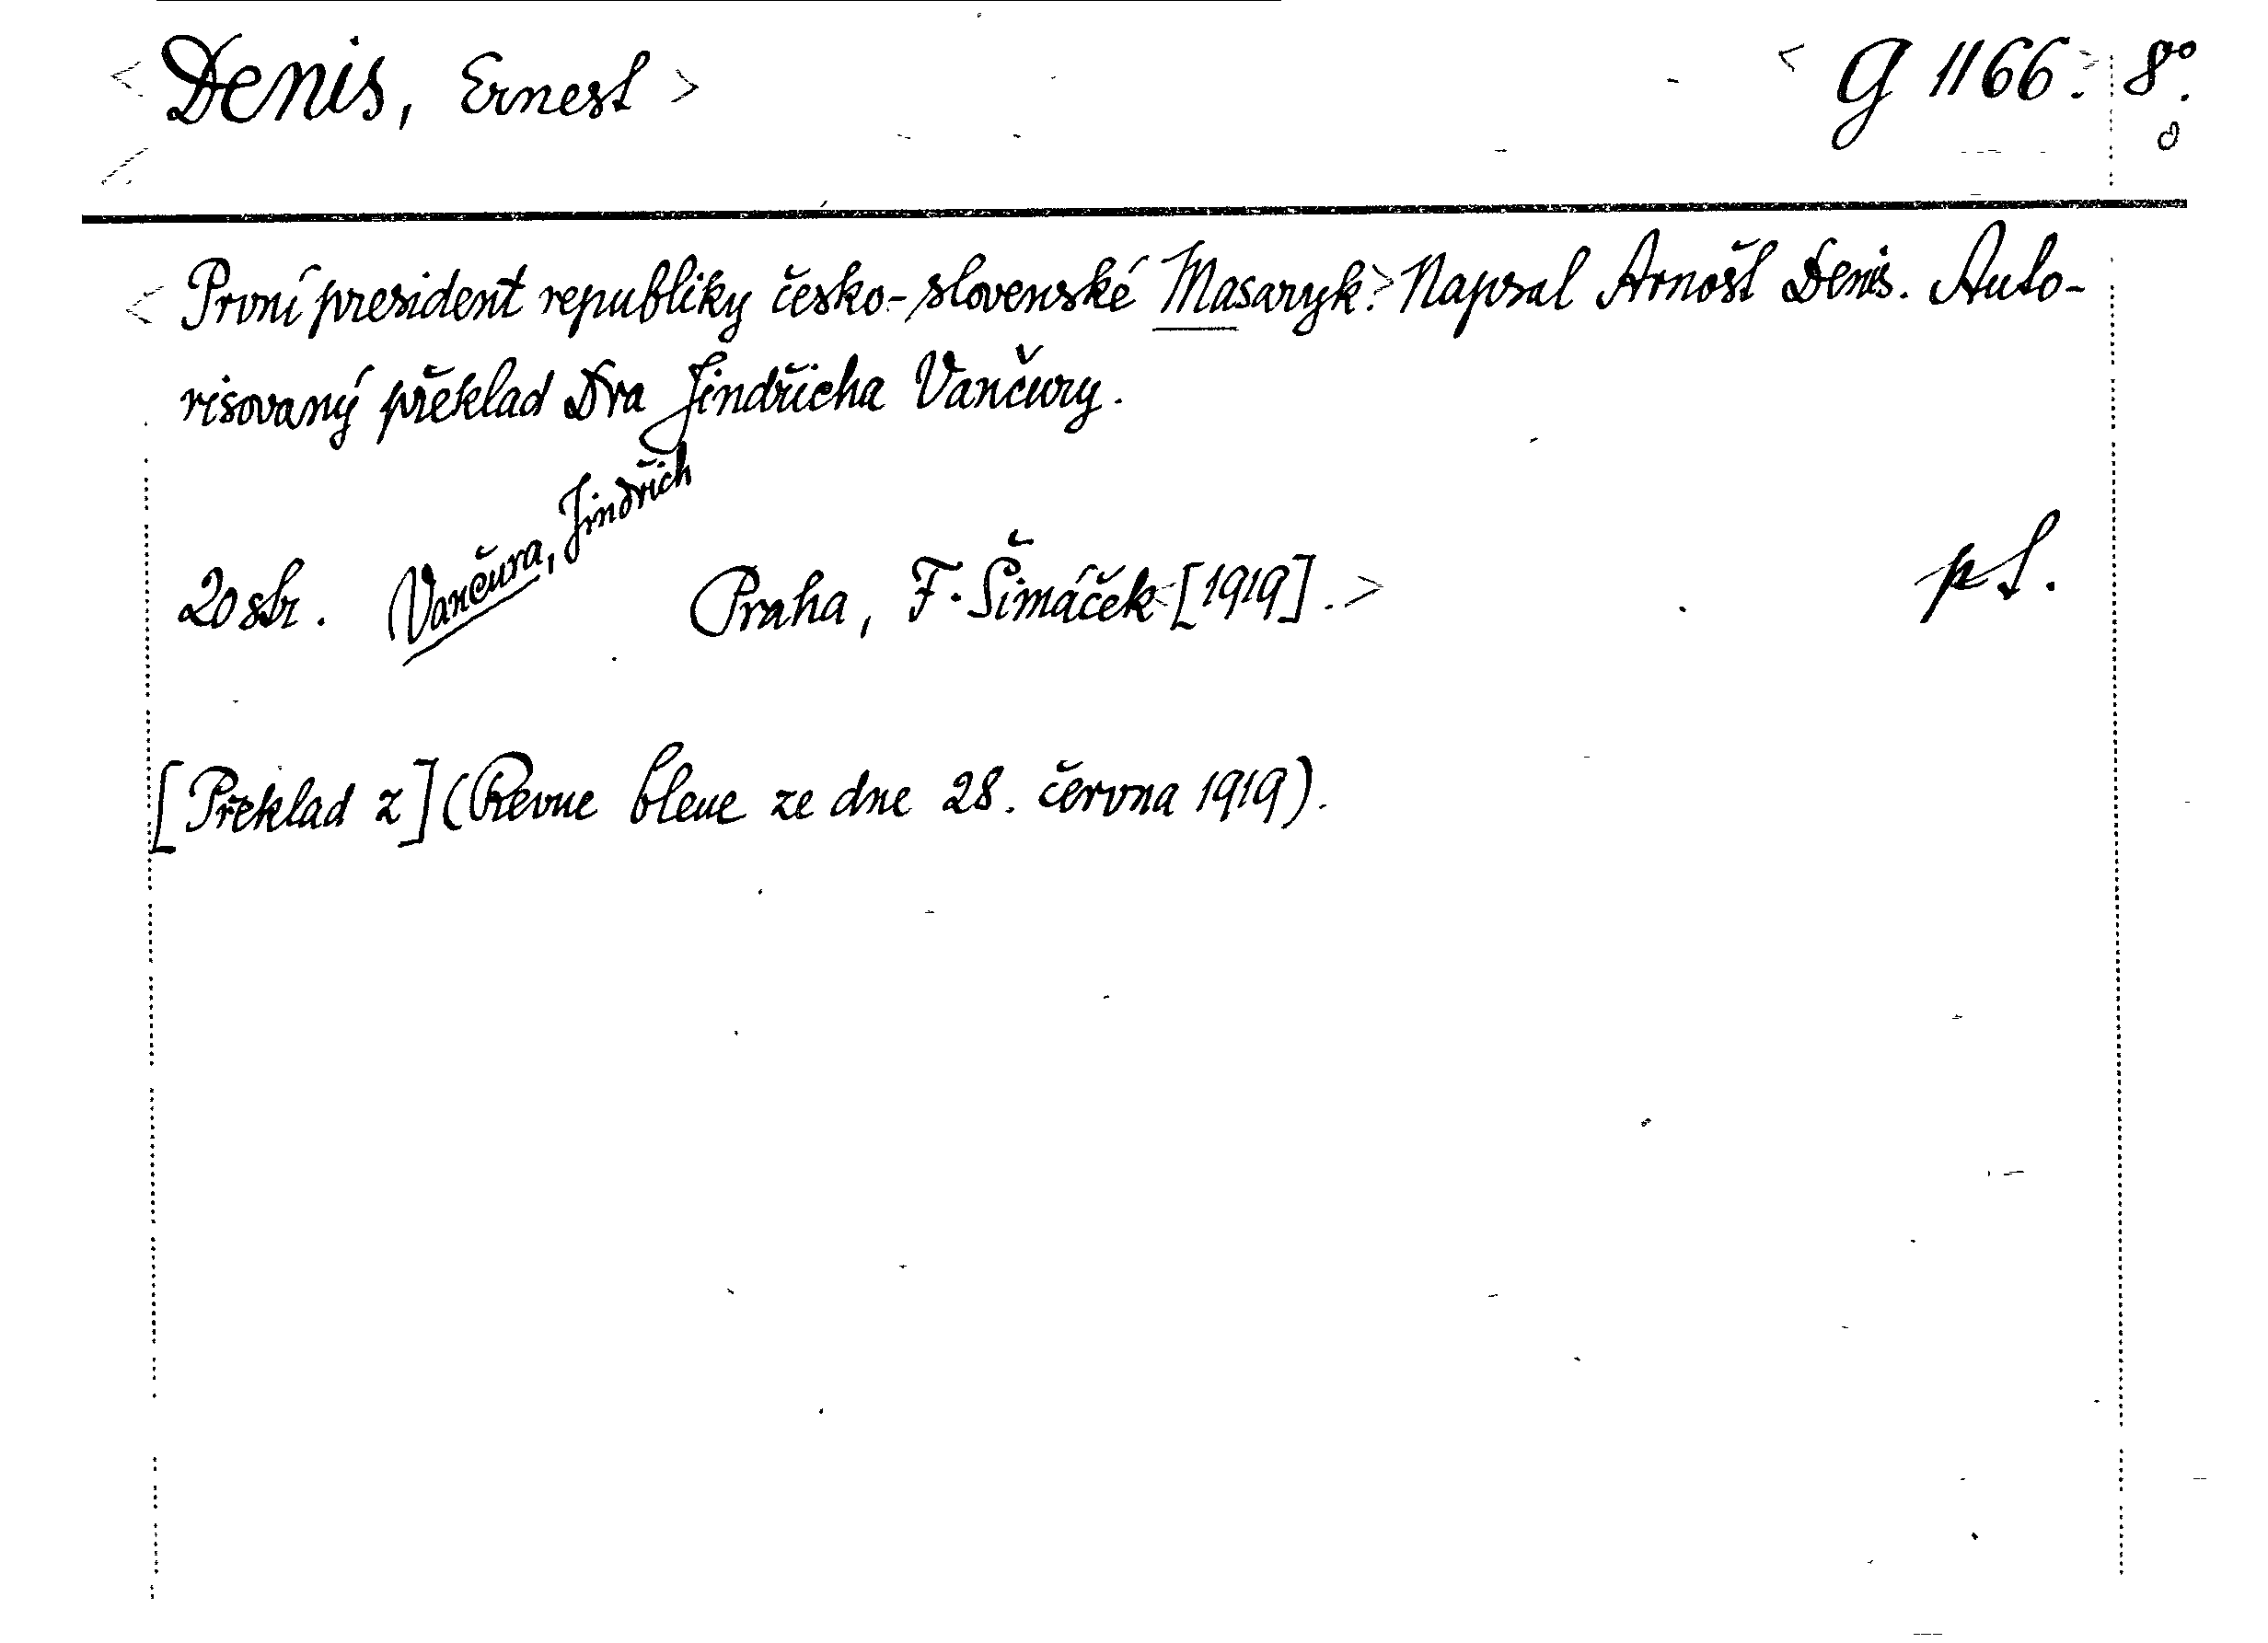 <Denis, Ernest> <G 1166.> 8°.
<První president republiky česko-slovenské Masaryk.> Napsal Arnošt Denis. Auto-
risovaný překlad Dra Jindřicha Vančury.
Vančura, Jindřich
20 str. Praha, F. Šimáček <[1919].>
[Překlad z] (Revue bleue ze dne 28. června 1919).